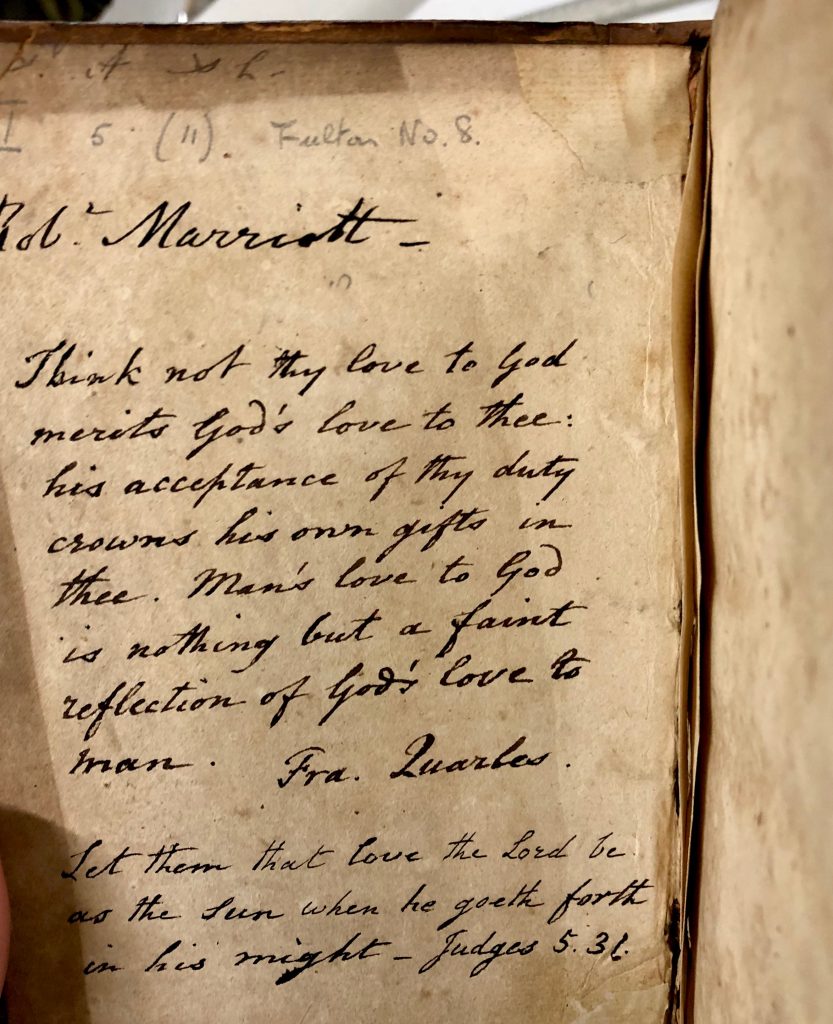 5 (11). Fulton No. 8.
Robr. Marriott –
Think not thy love to God
merits God's love to thee:
his acceptance of thy duty
crowns his own gifts in
thee. Man's love to God
is nothing but a faint
reflection of God's love to
man. Fra. Quarles.
Let them that love the Lord be
as the Sun when he goeth forth
in his might – Judges 5.31.